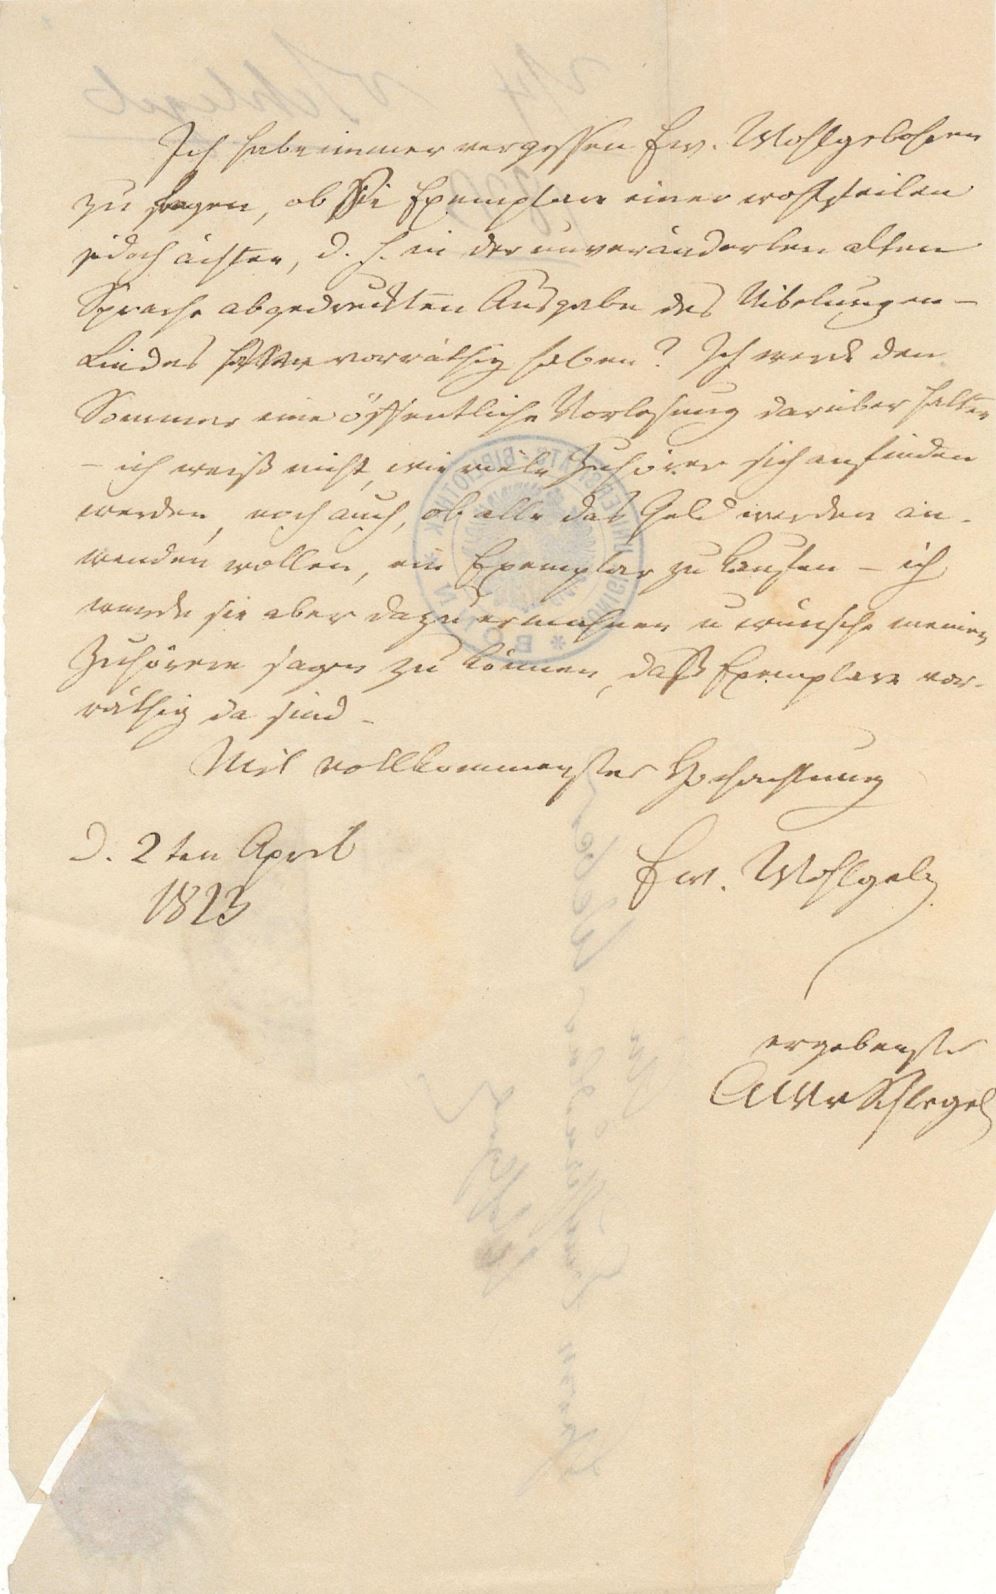 Ich habe immer vergessen Ew. Wohlgebohren
zu fragen, ob Sie Exemplare einer wohlfeilen
jedoch ächten, d. h. in der unveränderten alten
Sprache abgedruckten Ausgabe des Nibelungen-
Liedes vorräthig haben? Ich werde den
Sommer eine öffentliche Vorlesung darüber halten
– ich weiß nicht, wie viele Zuhörer sich anfinden
werden, noch auch, ob alle das Geld werden an-
wenden wollen, ein Exemplar zu kaufen – ich
werde sie aber dazu ermahnen u wünsche meinen
Zuhörern sagen zu können, daß Exemplare vor-
räthig da sind –
Mit vollkommenster Hochachtung
Ew. Wohlgeb
d. 2ten April
1823
ergebenster
AWvSchlegel